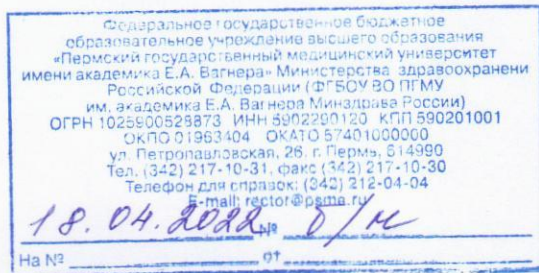 Федеральное государственное бюджетное
образовательное учреждение высшего образования
«Пермский государственный медицинский университет
имени академика Е.А. Вагнера» Министерства здравоохранени
Российской Федерации (ФГБОУ ВО ПГМУ
им. академика Е.А. Вагнера Минздрава России)
ОГРН 1025900528873 ИНН 5902290120 КПП 590201001
ОКПО 01963404 ОКАТО 57401000000
ул. Петропавловская, 26, г. Пермь, 614990
Тел. (342) 217-10-31, факс (342) 217-10-30
Телефон для справок: (342) 212-04-04
E-mail: rector@psma.ru
18.04.2022 № б/н
На № от